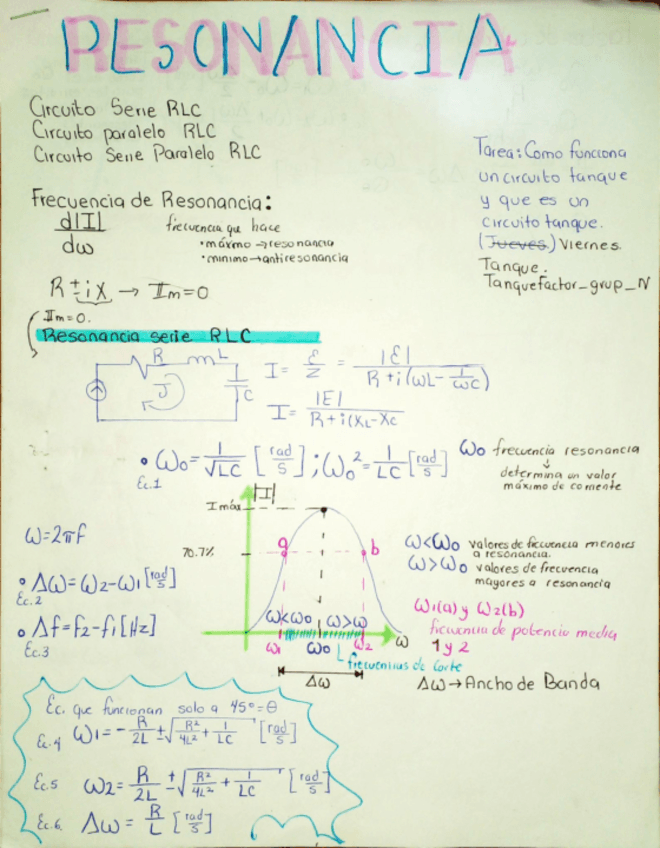 RESONANCIA
Circuito Serie RLC
Circuito paralelo RLC
Circuito Serie Paralelo RLC
Tarea: Como funciona
un circuito tanque
y que es un
circuito tanque.
(Jueves) Viernes
Tanque.
Tanquefactor_grup_N
Frecuencia de Resonancia:
d|I|
dω
frecuencia que hace
• máximo → resonancia
• minimo → antiresonancia
R ± iX → Im=0
Im=0.
Resonancia serie RLC
R L
J C
I = ℰ/Z = |ℰ| / R+i(ωL - 1/ωC)
I = |E| / R+i(XL-Xc
• ωo = 1/√LC [rad/s]; ωo² = 1/LC [rad/s]
Ec.1
ωo frecuencia resonancia
↓
determina un valor
máximo de corriente
|I|
I máx
70.7%
a b
ω<ωo ω>ω
ω1 ωo ω2 ω
frecuencias de corte
Δω
ω=2πf
• Δω=ω2-ω1 [rad/s]
Ec.2
• Δf=f2-f1 [Hz]
Ec.3
ω<ωo valores de frecuencia menores
a resonancia.
ω>ωo valores de frecuencia
mayores a resonancia
ω1(a) y ω2(b)
frecuencia de potencia media
1 y 2
Δω → Ancho de Banda
Ec. que funcionan solo a 45°=θ
Ec.4 ω1 = -R/2L ± √R²/4L² + 1/LC [rad/s]
Ec.5 ω2 = R/2L ± √R²/4L² + 1/LC [rad/s]
Ec.6 Δω = R/L [rad/s]